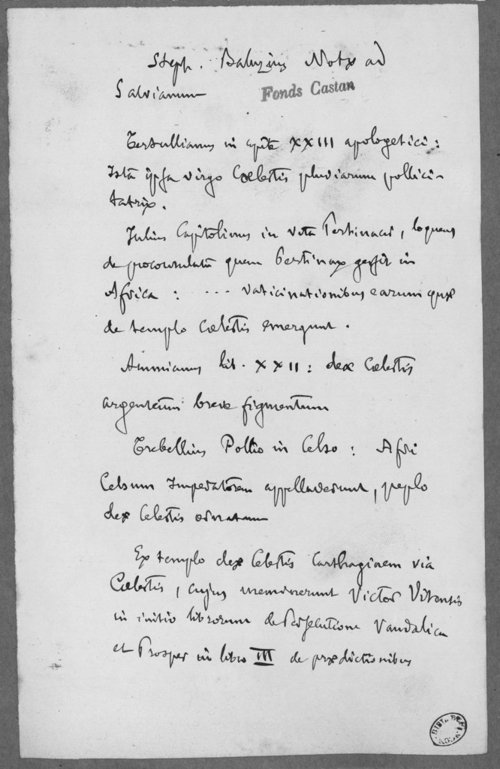 Steph. Baluzius Notæ ad
Salvianum
Fonds Castan
Tertullianus in capite XXIII apologetici :
Ista ipsa virgo Cœlestis pluviarum pollici-
tatrix.
Julius Capitolinus in vita Pertinacis, loquens
de proconsulatu quem Pertinax gessit in
Africa : ... vaticinationibus earum quæ
de templo Cœlestis emergunt.
Ammianus lib. XXII : deæ Cœlestis
argenteum breve figmentum
Trebellius Pollio in Celso : Afri
Celsum Imperatorem appellaverunt, peplo
deæ Celestis ornatum
Ex templo deæ Celestis Carthaginem via
Cœlestis, cujus meminerunt Victor Vitensis
in initio librorum de Persecutione Vandalica
et Prosper in libro III de prædictionibus